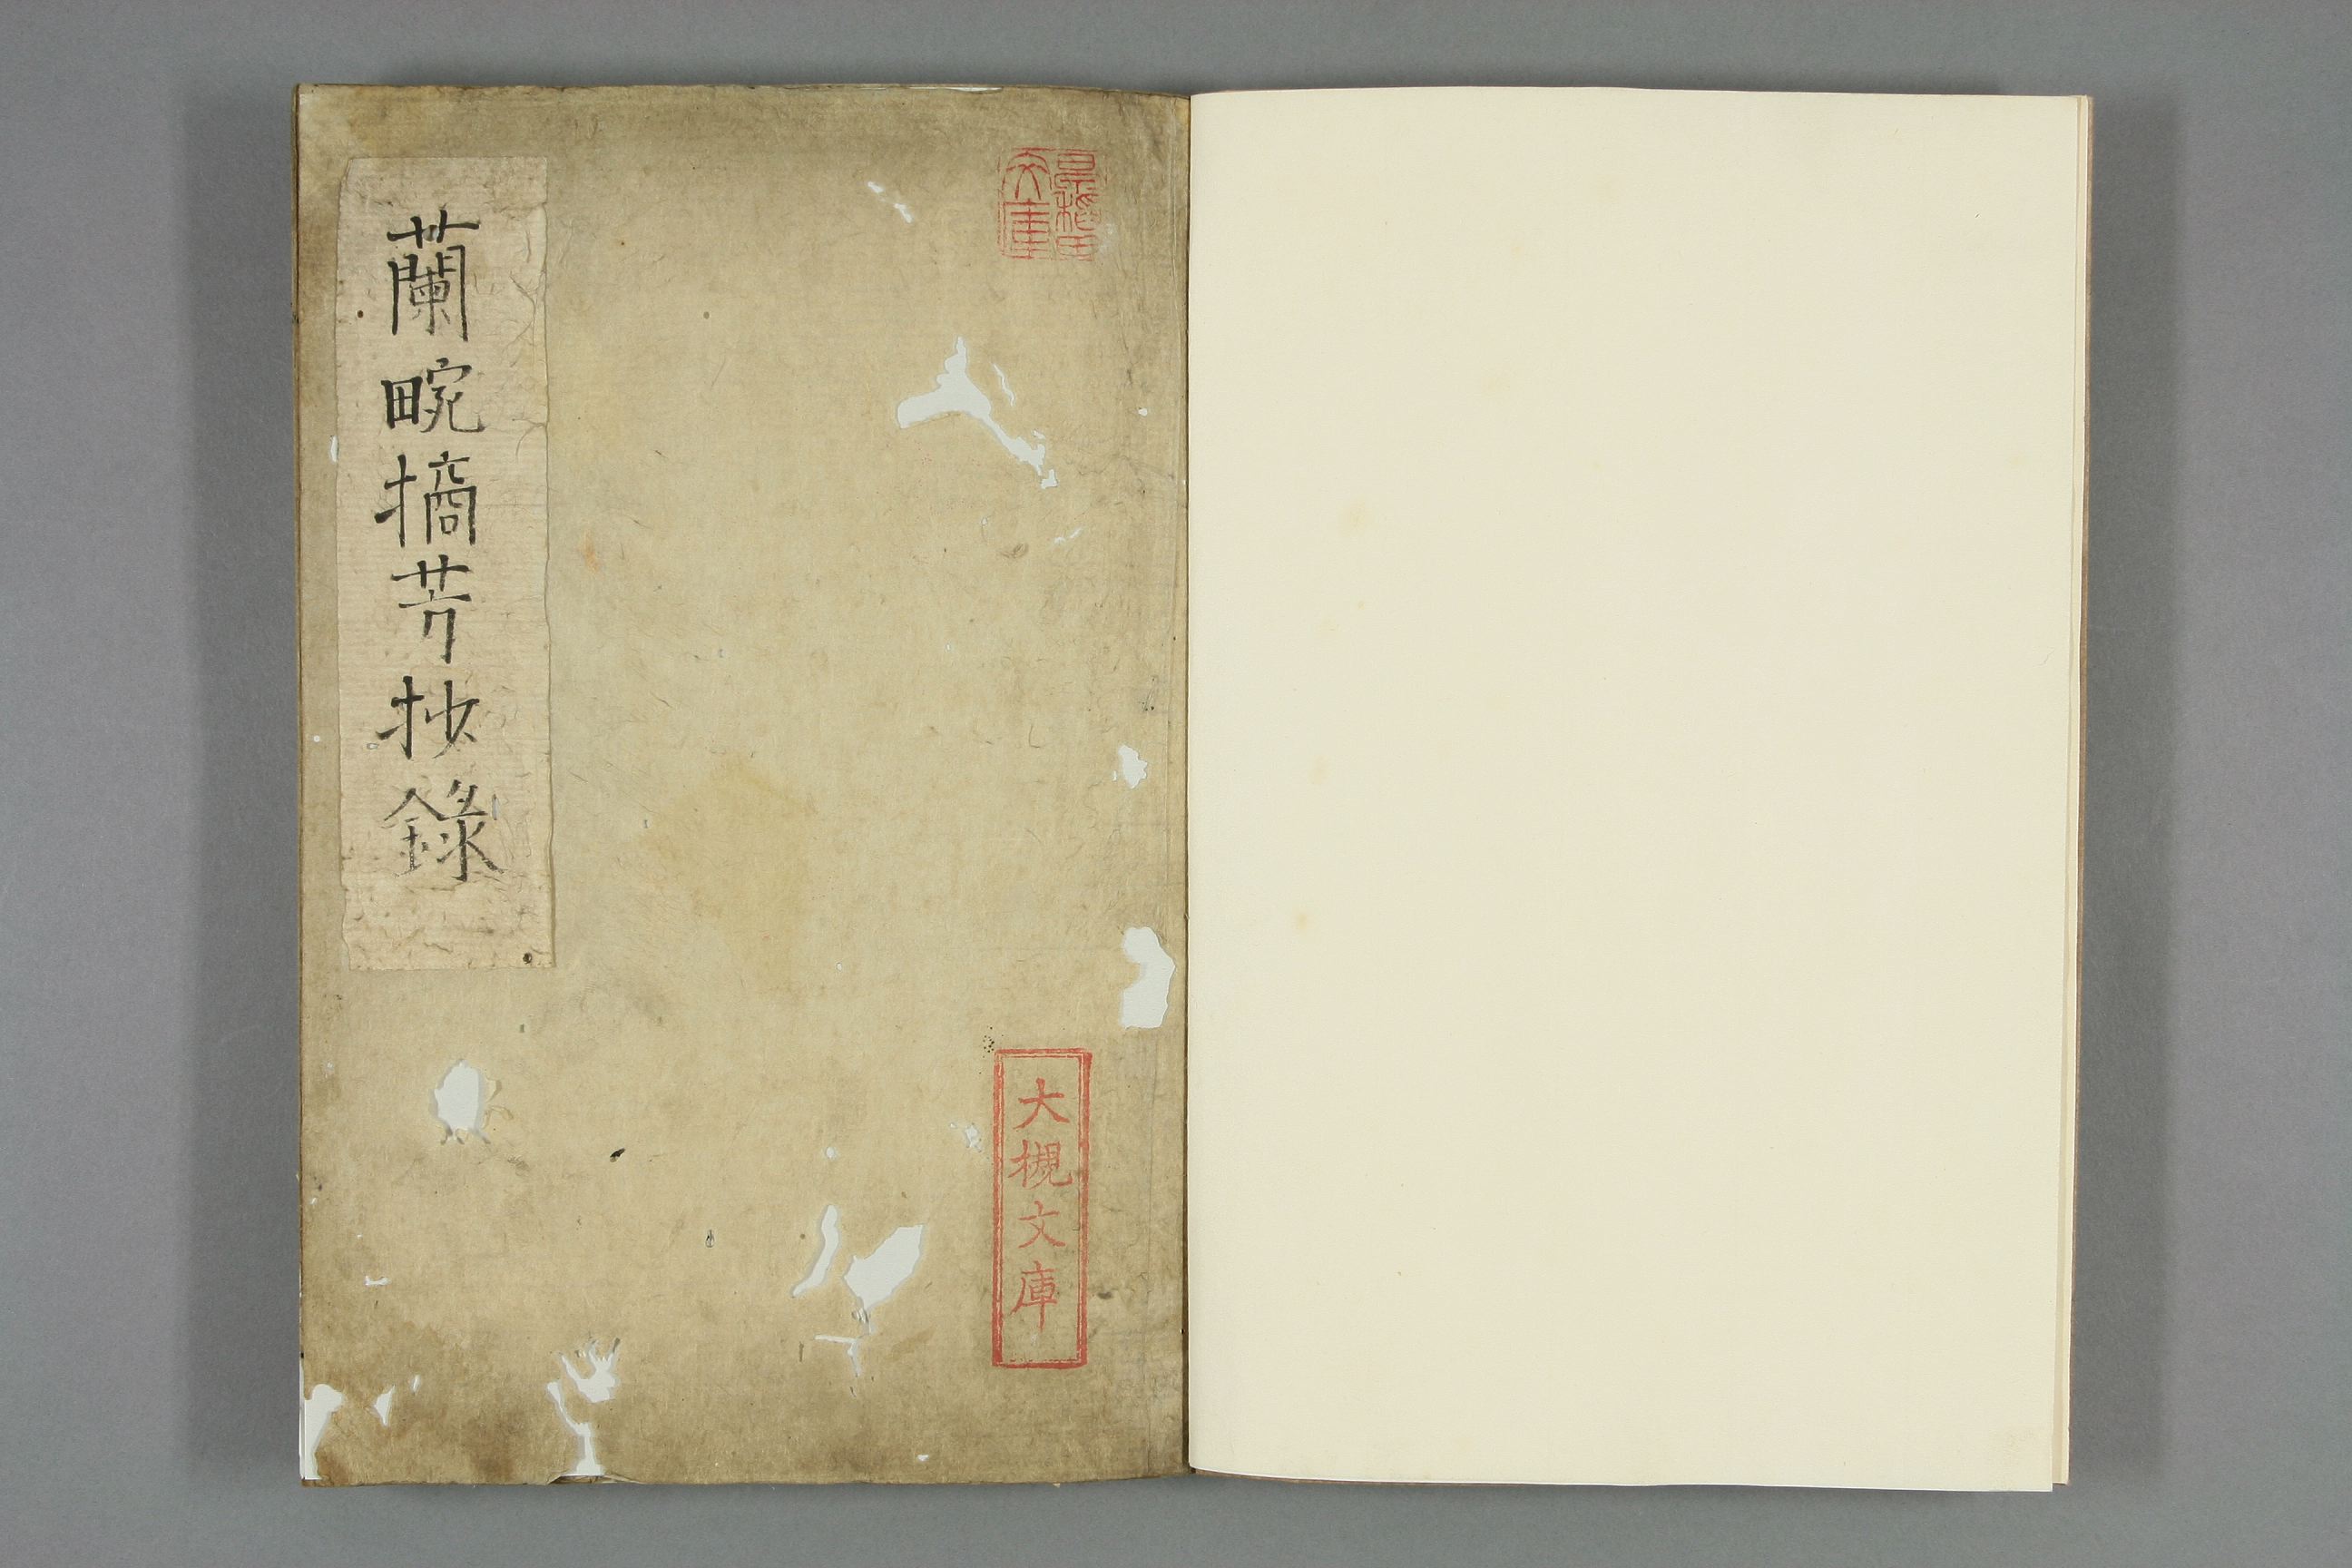 早稲田文庫
大槻文庫
蘭畹摘芳抄錄